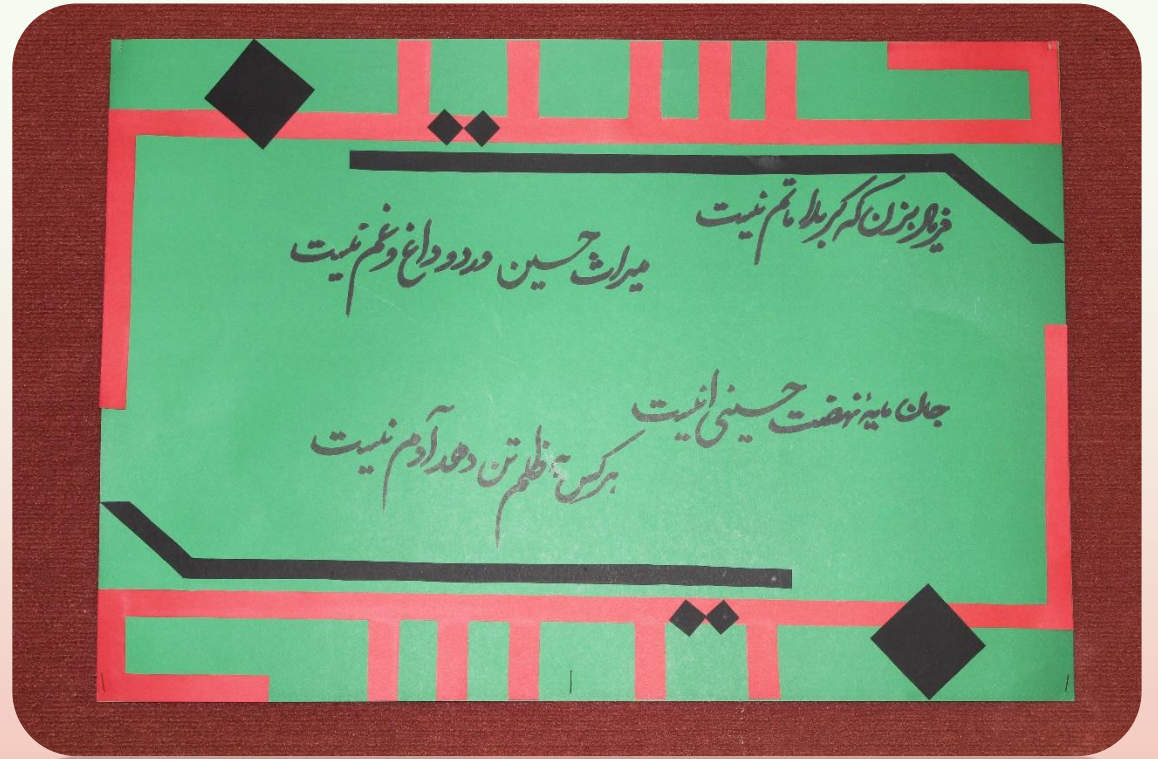 فریاد بزن که کربلا ماتم نیست
میراث حسین درد و داغ و غم نیست
جان مایهٔ نهضت حسینی اینست
هر کس به ظلم تن دهد آدم نیست